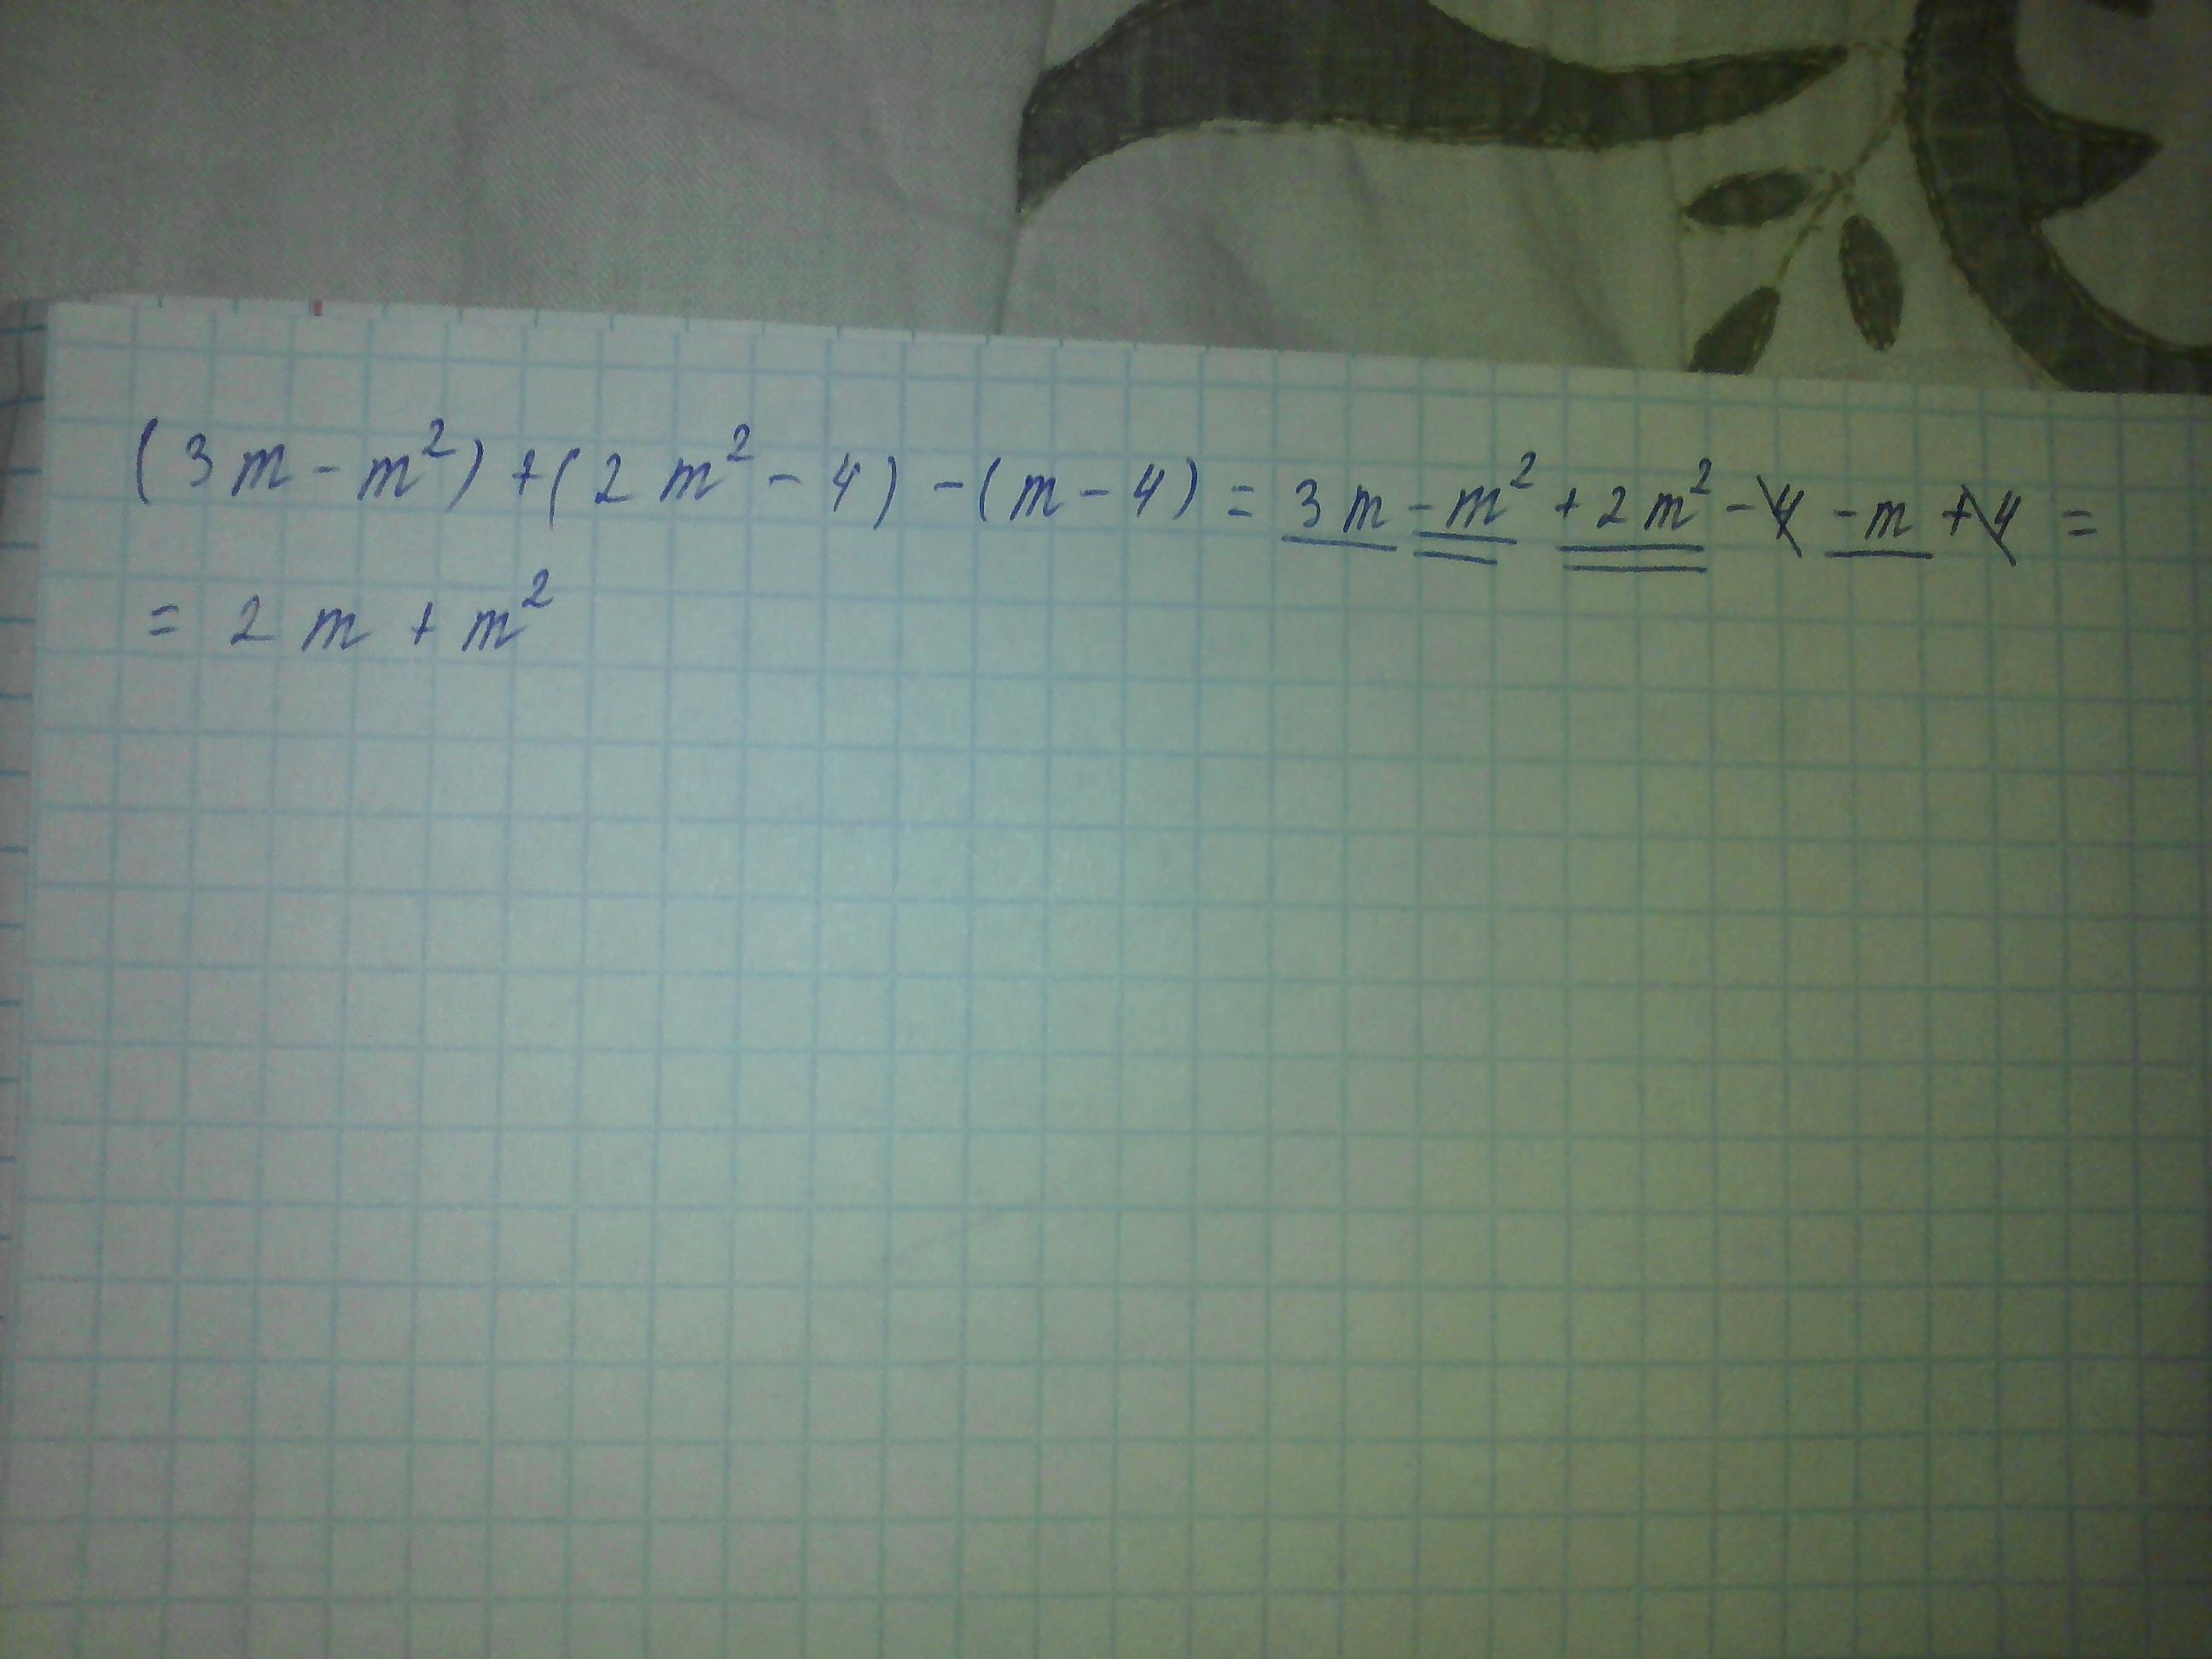 (3m - m²) + (2m² - 4) - (m - 4) = 3m - m² + 2m² - 4 - m + 4 =
= 2m + m²